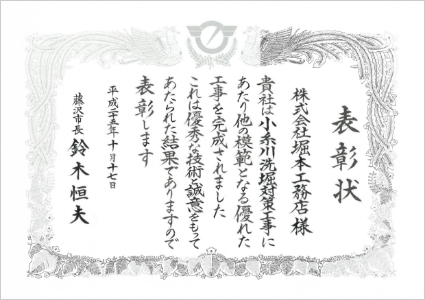 表彰状
株式会社堀本工務店様
貴社は小糸川洗堀対策工事に
あたり他の模範となる優れた
工事を完成されました
これは優秀な技術と誠意をもって
あたられた結果でありますので
表彰します
平成二十五年十月十七日
藤沢市長 鈴木恒夫